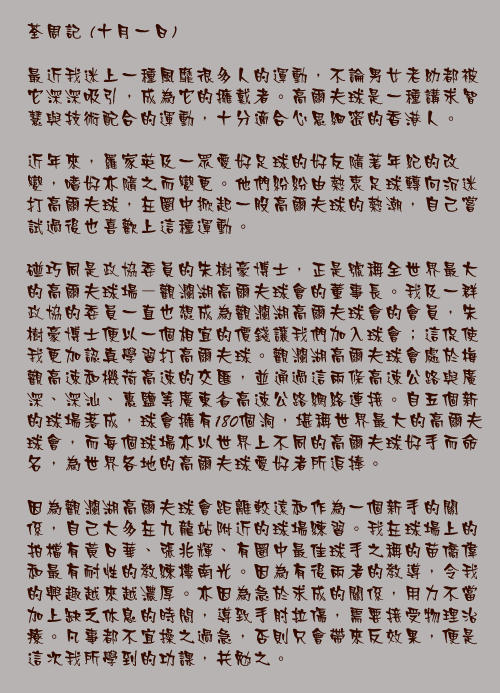 荃周記 (十月一日)
最近我迷上一種風靡很多人的運動，不論男女老幼都被
它深深吸引，成為它的擁戴者。高爾夫球是一種講求智
慧與技術配合的運動，十分適合心思細密的香港人。
近年來，羅家英及一眾愛好足球的好友隨著年紀的改
變，嗜好亦隨之而變更。他們紛紛由熱衷足球轉向沉迷
打高爾夫球，在圈中掀起一股高爾夫球的熱潮，自己嘗
試過後也喜歡上這種運動。
碰巧同是政協委員的朱樹豪博士，正是號稱全世界最大
的高爾夫球場—觀瀾湖高爾夫球會的董事長。我及一群
政協的委員一直也想成為觀瀾湖高爾夫球會的會員，朱
樹豪博士便以一個相宜的價錢讓我們加入球會；這促使
我更加認真學習打高爾夫球。觀瀾湖高爾夫球會處於梅
觀高速和機荷高速的交匯，並通過這兩條高速公路與廣
深、深汕、惠鹽等廣東各高速公路網路連接。自五個新
的球場落成，球會擁有180個洞，堪稱世界最大的高爾夫
球會，而每個球場亦以世界上不同的高爾夫球好手而命
名，為世界各地的高爾夫球愛好者所追捧。
因為觀瀾湖高爾夫球會距離較遠和作為一個新手的關
係，自己大多在九龍站附近的球場練習。我在球場上的
拍檔有黃日華、張兆輝、有圈中最佳球手之稱的苗僑偉
和最有耐性的教練樓南光。因為有後兩者的教導，令我
的興趣越來越濃厚。亦因為急於求成的關係，用力不當
加上缺乏休息的時間，導致手肘拉傷，需要接受物理治
療。凡事都不宜操之過急，否則只會帶來反效果，便是
這次我所學到的功課，共勉之。